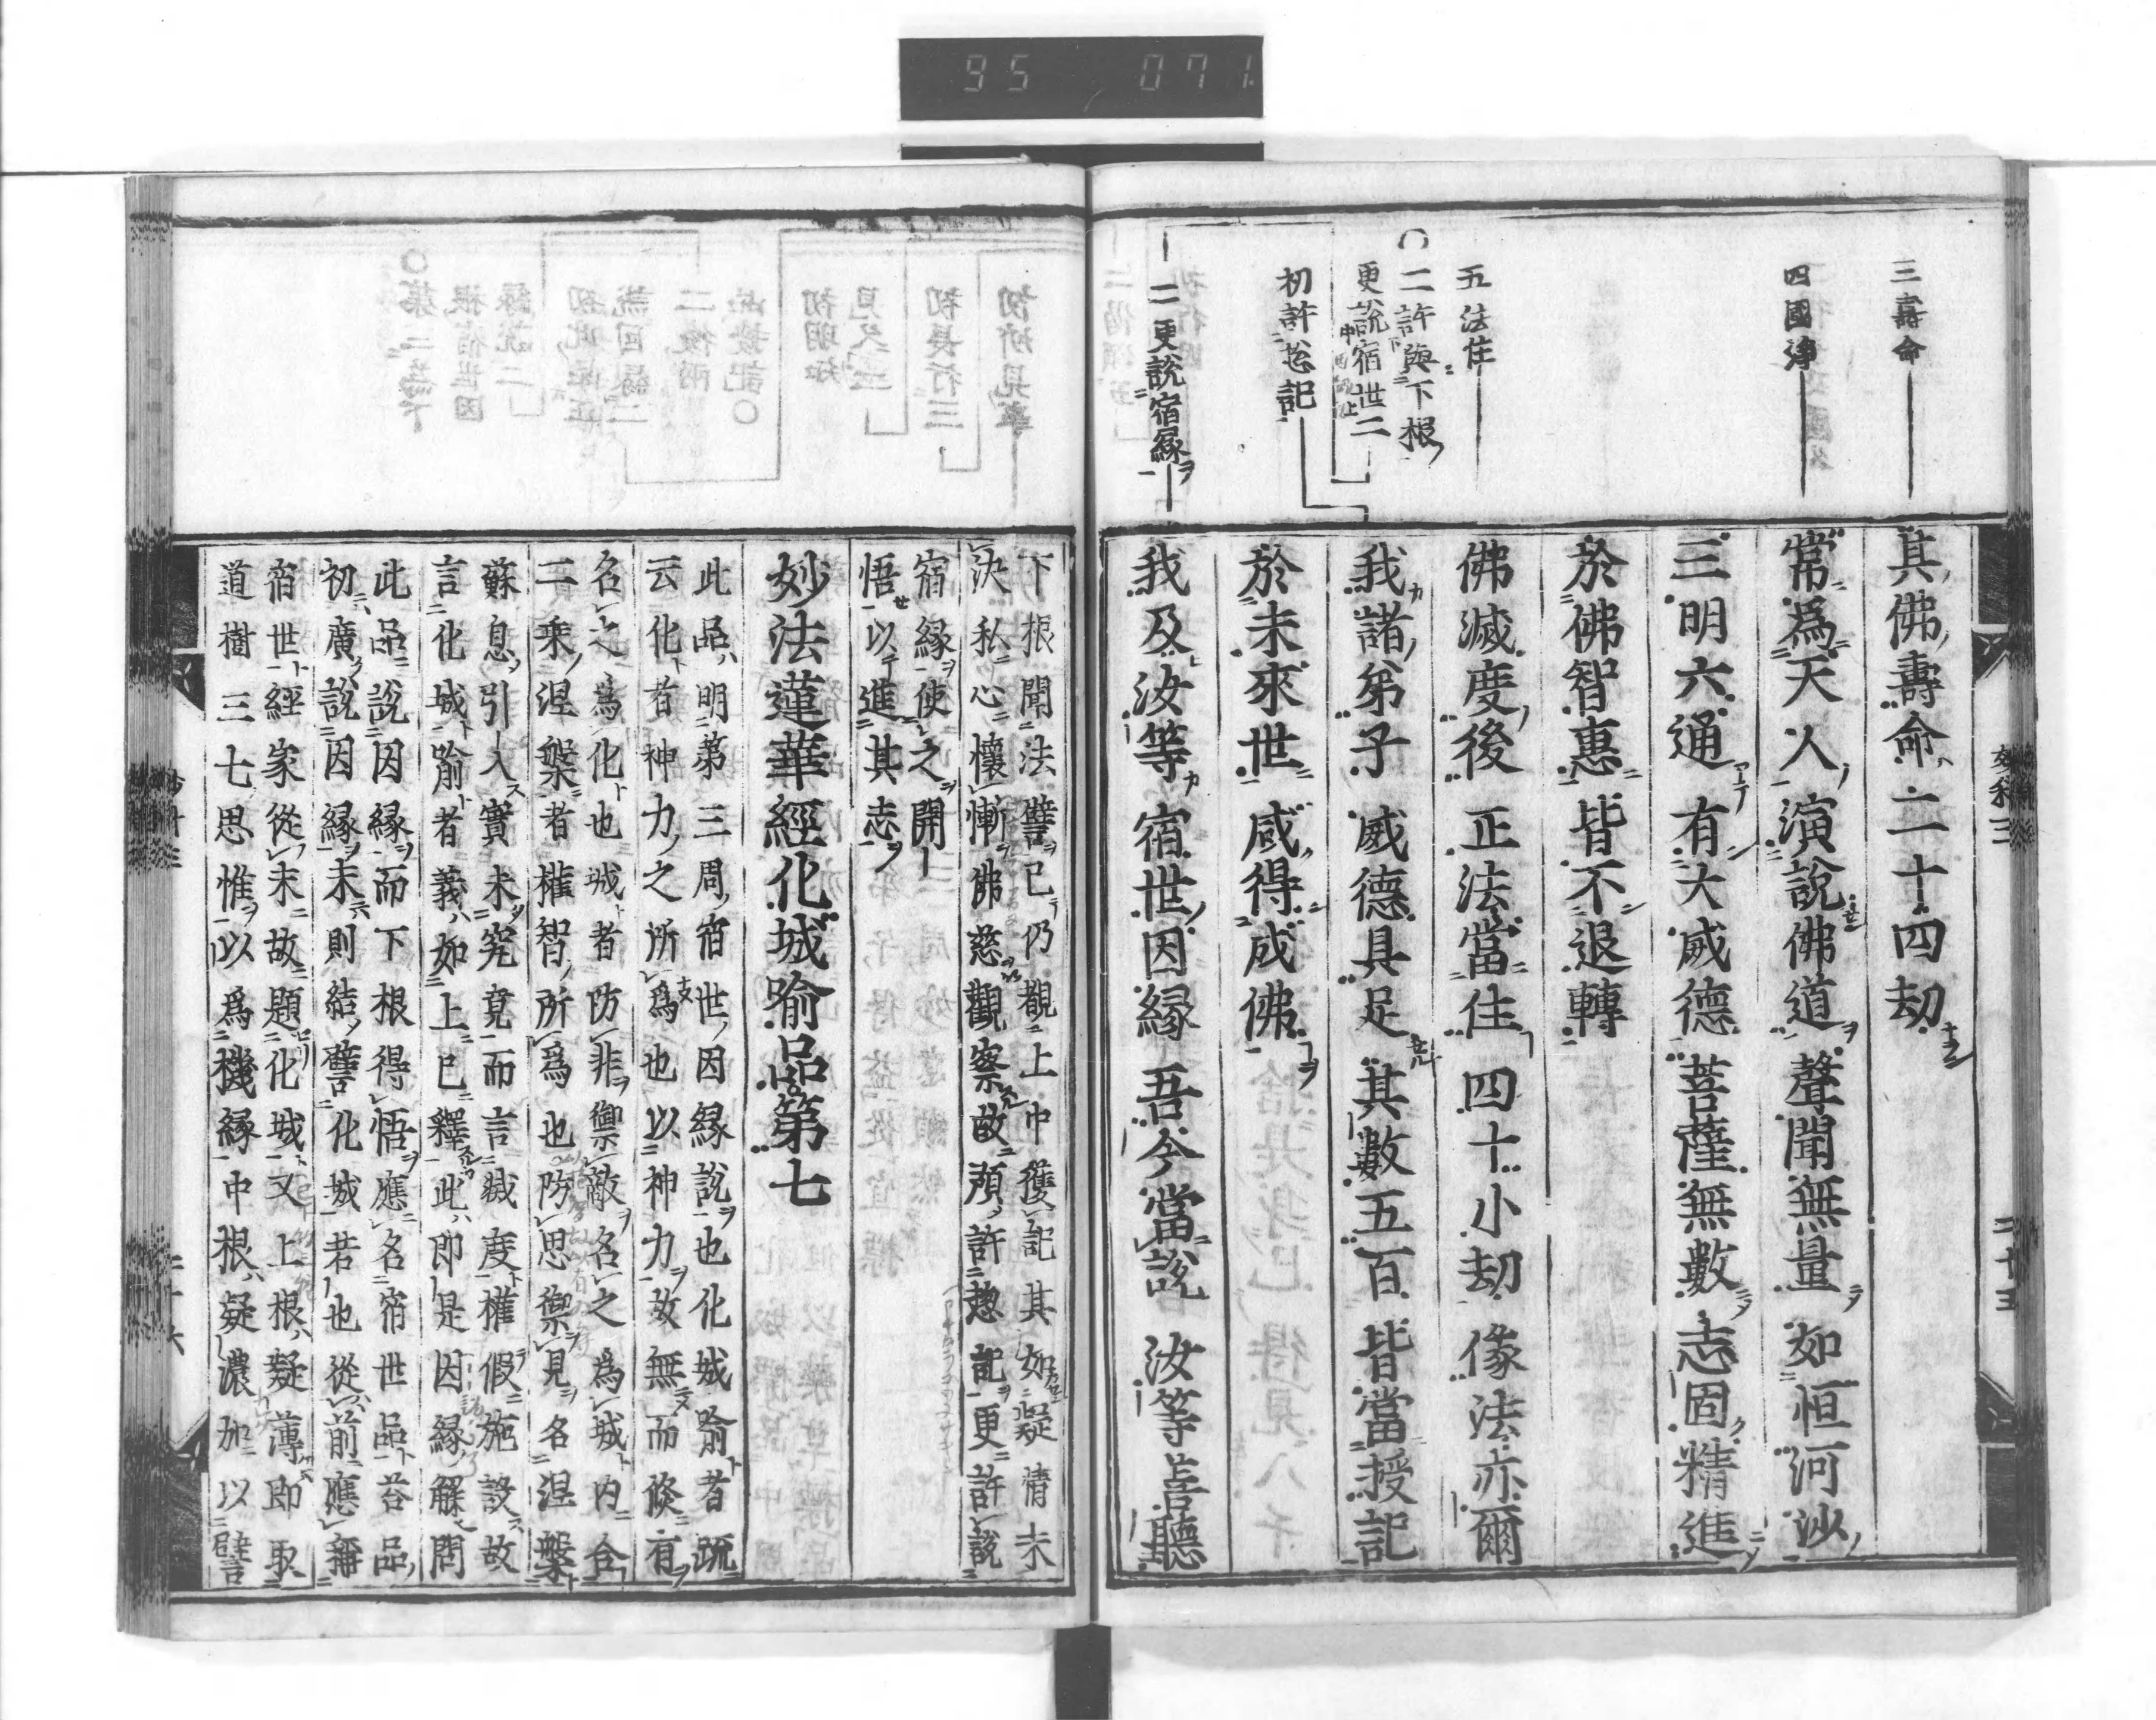 95 071
三壽命
四國淨
五法住
○二許與下根
更說宿世二
初許總記
二更說宿緣
其佛壽命 二十四劫
常爲天人 演說佛道 聲聞無量 如恒河沙
三明六通 有大威德 菩薩無數 志固精進
於佛智惠 皆不退轉
佛滅度後 正法當住 四十小劫 像法亦爾
我諸弟子 威德具足 其數五百 皆當授記
於未來世 咸得成佛
我及汝等 宿世因緣 吾今當說 汝等善聽
二十五
下根聞法譬已仍觀上中獲記其如疑情未
決私心懷慚佛慈觀察故預許總記更許說
宿緣使之開
悟以進其志
妙法蓮華經化城喻品第七
此品明第三周宿世因緣說也化城喻者疏
云化者神力之所爲也以神力故無而倐有
名之爲化也城者防非禦敵名之爲城內合
二乘涅槃者權智所爲也防思禦見名涅槃
蘇息引入實未究竟而言滅度權假施設故
言化城喻者義如上已釋此即是因緣解問
此品說因緣而下根得悟應名宿世品荅品
初廣說因緣末則結譬化城若也從前應稱
宿世經家從末故題化城又上根疑薄即取
道樹三七思惟以爲機緣中根疑濃加以譬